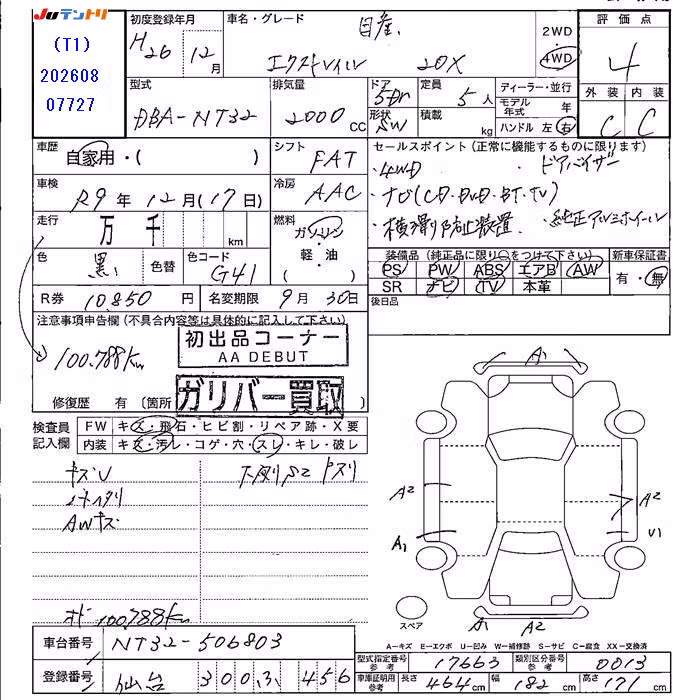 JUテントリ
(T1)
202608
07727
初度登録年月
H26年 12月
車名・グレード
日産
エクストレイル 20X
2WD
4WD
評価点
4
外装 内装
C C
型式
DBA-NT32
排気量
2000 cc
ドア
5Dr
形状
SW
定員
5人
積載
kg
ディーラー・並行
モデル年式 年
ハンドル 左 右
車歴
自家用・( )
シフト
FAT
セールスポイント(正常に機能するものに限ります)
・4WD ・ドアバイザー
・ナビ(CD・DVD・BT・TV)
・横滑り防止装置 ・純正アルミホイール
車検
R9年12月(17日)
冷房
AAC
走行
万 千 km
燃料
ガソリン
軽・油
( )
色
黒
色替
色コード
G41
装備品(純正品に限り○をつけて下さい)
PS PW ABS エアB AW
SR ナビ TV 本革
新車保証書
有・無
後日品
R券 10,850円
名変期限 9月30日
注意事項申告欄(不具合内容等は具体的に記入して下さい)
100,788km
初出品コーナー
AA DEBUT
ガリバー買取
修復歴 有 (箇所
検査員記入欄
FW キズ・飛石・ヒビ割・リペア跡・X要
内装 キズ・汚レ・コゲ・穴・スレ・キレ・破レ
キズU
AWキズ
下廻りS2
オド 100,788km
A1
A2
A2
A1
U1
A1
A2
スペア
A-キズ E-エクボ U-凹み W-補修跡 S-サビ C-腐食 XX-交換済
車台番号 NT32-506803
登録番号 仙台 300 ふ 456
型式指定番号 参考 17663
類別区分番号 参考 0013
車庫証明用 参考 長さ 464cm 幅 182cm 高さ 171cm